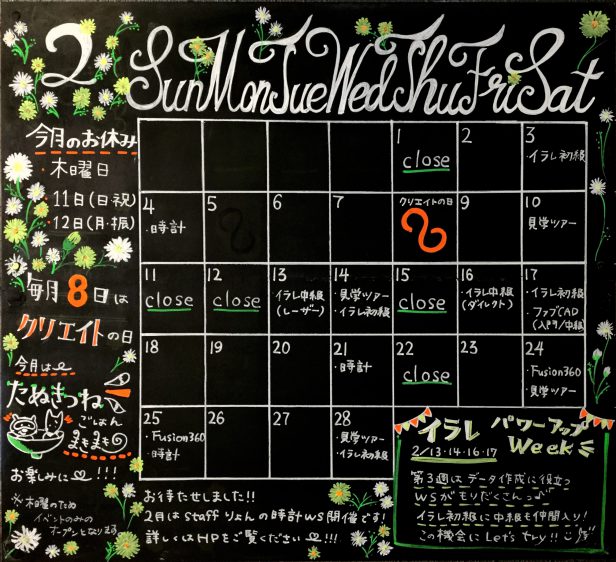 2
Sun Mon Tue Wed Thu Fri Sat
今月のお休み
・木曜日
・11日(日・祝)
・12日(月・振)
毎月8日は
クリエイトの日
今月は
たぬきつね
ごはん
まきまき
お楽しみに!!!
※木曜のため
イベントのみの
オープンとなります
1
close
2
3
・イラレ初級
4
・時計
5
6
7
クリエイトの日
8
9
10
見学ツアー
11
close
12
close
13
イラレ中級
(レーザー)
14
・見学ツアー
・イラレ初級
15
close
16
・イラレ中級
(ダイレクト)
17
・イラレ初級
・ファブCAD
(入門/中級)
18
19
20
21
・時計
22
close
23
24
・Fusion360
・見学ツアー
25
・Fusion360
・時計
26
27
28
・見学ツアー
・イラレ初級
お待たせしました!!
2月はstaffりょんの時計WS開催です!
詳しくはHPをご覧ください!!!
イラレ パワーアップ
Week
2/13・14・16・17
第3週はデータ作成に役立つ
WSがもりだくさんっ♪
イラレ初級に中級も仲間入り!
この機会にLet's try!!